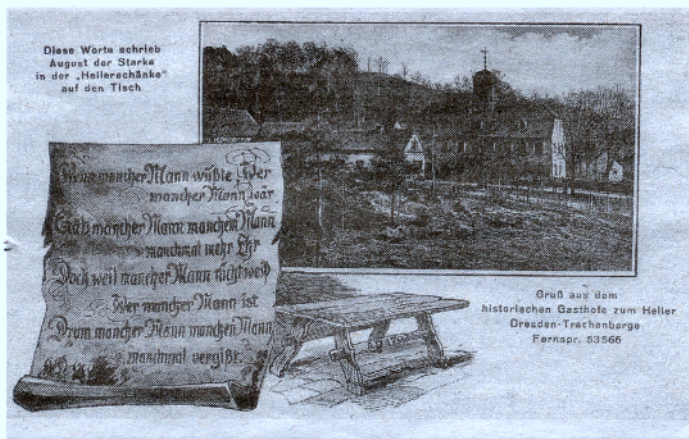 Diese Worte schrieb
August der Starke
in der „Hellerschänke"
auf den Tisch
Wenn mancher Mann wüßte Wer
mancher Mann wär
Gäb mancher Mann manchem Mann
manchmal mehr Ehr
Doch weil mancher Mann nicht weiß
Wer mancher Mann ist
Drum mancher Mann manchen Mann
manchmal vergißt.
Gruß aus dem
historischen Gasthofe zum Heller
Dresden-Trachenberge
Fernspr. 53566